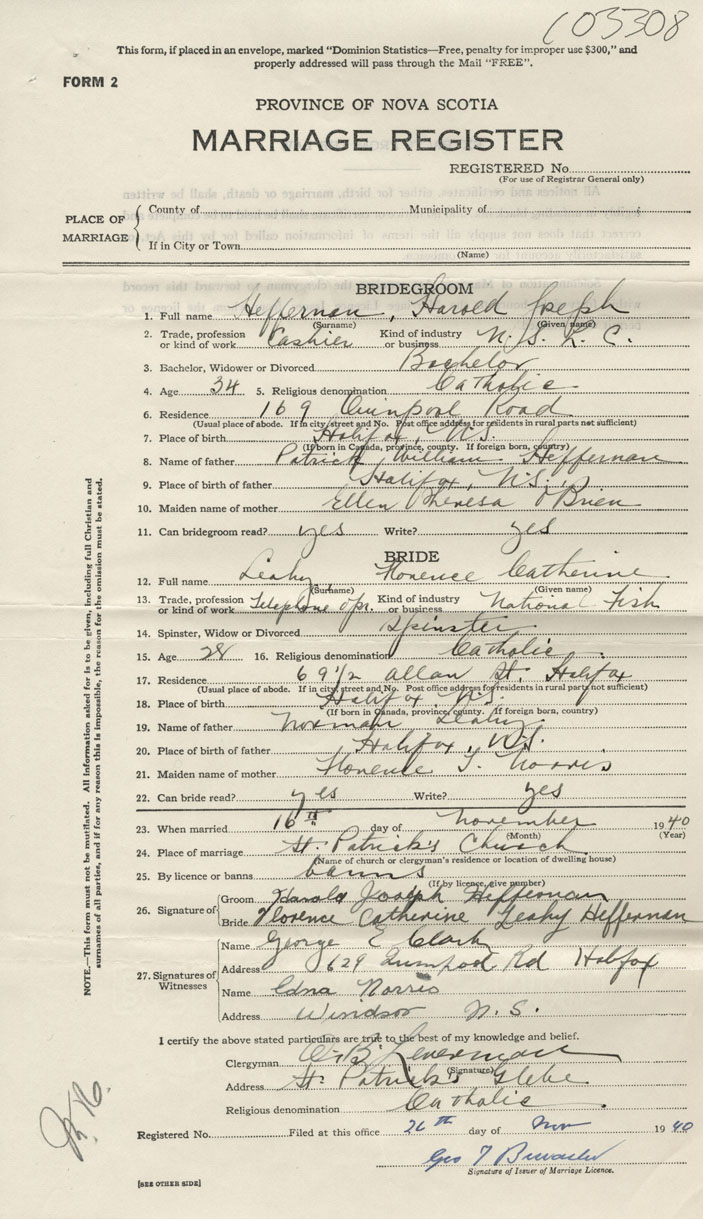 103308
This form, if placed in an envelope, marked "Dominion Statistics—Free, penalty for improper use $300," and
properly addressed will pass through the Mail "FREE".
FORM 2
PROVINCE OF NOVA SCOTIA
MARRIAGE REGISTER
REGISTERED No.
(For use of Registrar General only)
PLACE OF MARRIAGE
County of Municipality of
If in City or Town
(Name)
BRIDEGROOM
1. Full name Heffernan, Harold Joseph
(Surname) (Given name)
2. Trade, profession or kind of work Cashier Kind of industry or business N. S. L. C.
3. Bachelor, Widower or Divorced Bachelor
4. Age 34 5. Religious denomination Catholic
6. Residence 169 Quinpool Road
(Usual place of abode. If in city, street and No. Post office address for residents in rural parts not sufficient)
7. Place of birth Halifax, N.S.
(If born in Canada, province, county. If foreign born, country)
8. Name of father Patrick William Heffernan
9. Place of birth of father Halifax, N.S.
10. Maiden name of mother Ellen Theresa O'Brien
11. Can bridegroom read? yes Write? yes
BRIDE
12. Full name Leahy Florence Catherine
(Surname) (Given name)
13. Trade, profession or kind of work Telephone Opr. Kind of industry or business National Fish
14. Spinster, Widow or Divorced Spinster
15. Age 28 16. Religious denomination Catholic
17. Residence 69 1/2 Allan St. Halifax
(Usual place of abode. If in city, street and No. Post office address for residents in rural parts not sufficient)
18. Place of birth Halifax N.S.
(If born in Canada, province, county. If foreign born, country)
19. Name of father Norman Leahy
20. Place of birth of father Halifax, N.S.
21. Maiden name of mother Florence T. Norris
22. Can bride read? yes Write? yes
23. When married 16th day of November 1940
(Month) (Year)
24. Place of marriage St. Patrick's Church
(Name of church or clergyman's residence or location of dwelling house)
25. By licence or banns banns
(If by licence, give number)
26. Signature of
Groom Harold Joseph Heffernan
Bride Florence Catherine Leahy Heffernan
27. Signatures of Witnesses
Name George E Clark
Address 629 Quinpool Rd Halifax
Name Edna Norris
Address Windsor N.S.
I certify the above stated particulars are true to the best of my knowledge and belief.
Clergyman
(Signature)
Address St. Patrick's Glebe
Religious denomination Catholic
Registered No. Filed at this office 26th day of Nov 1940
Geo T
Signature of Issuer of Marriage Licence.
[SEE OTHER SIDE]
NOTE.—This form must not be mutilated. All information asked for is to be given, including full Christian and
surnames of all parties, and if for any reason this is impossible, the reason for the omission must be stated.